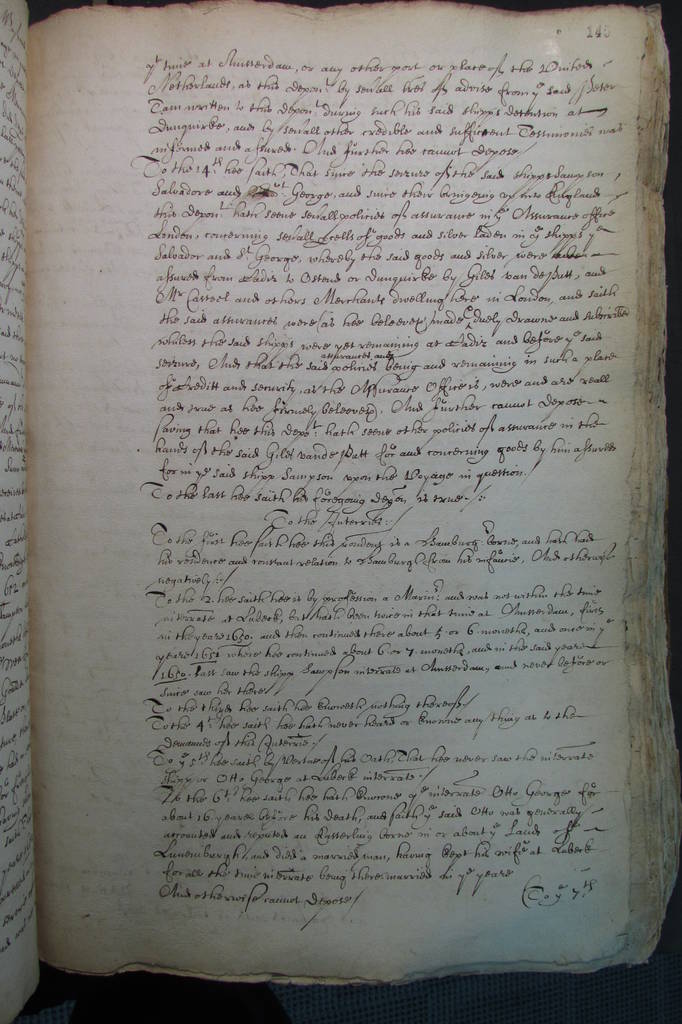 145
ye time at Amsterdam, or any other port or place of the United
Netherlands, as this depont by severall lres of advise from ye said Peter
Tam written to this depont during such his said shipps detention at
Dunquirke, and by severall other credible and sufficient Testimonies was
informed and assured. And further hee cannot depose/
To the 14th hee saith, That since the seizure of the said shipps Sampson
Salvadore and St George, and since their bringeing up into England
this depont hath seene severall policies of assurance in ye Assurance office
London, concerning severall prcells of goods and silver laden in ye shipps ye
Salvador and St George, whereby the said goods and silver were
assured from Cadiz to Ostend or dunquirke by Giles van de Putt, and
Mr Casteel and others Merchants dwelling here in London, and saith
the said assurances were (as hee beleeveth) made & duely drawne and subscribed
whilest the said shipps were yet remaining at Cadiz and before ye said
seizure, And that the said assurances and policies being and remaining in such a place
of Creditt and security, as the Assurance Office is, were and are reall
and true as hee firmely beleeveth. And further cannot depose
saving that hee this depot hath seene other policies of assurance in the
hands of the said Giles vande Putt for and concerning goods by him assured
for in ye said shipp Sampson upon the Voyage in question.
To the last hee saith his foregoing depon is true.
To the Interries:/
To the first hee saith hee this rendent is a Hamburgr borne, and hath had
his residence and constant relation to Hamburgh from his infancie, And otherwise
negatively:/
To the 2. hee saith hee is by profession a Marinr, and was not within the time
interrate at Lubeck, but hath been twice in that time at Amsterdam, first
in the yeare 1650, and then continued there about 5 or 6 moneths, and once in ye
yeare 1651 where hee continued about 6 or 7 moneths, and in the said yeare
1650. last saw the shipp Sampson interrate at Amsterdam, and never before or
since saw her there/
To the third hee saith hee knoweth nothing thereof./
To the 4th hee saith hee hath never heard or knowne any thing as to the
demands of this Interrie:/
To ye 5th hee saith by Vertue of his Oath, That hee never saw the interrate
shipp or Otto George at Lubeck interrate:/
To the 6th hee saith hee hath knowne ye interrate Otto George for
about 16 yeares before his death, and saith ye said Otto was generally
accounted and reputed an Easterling borne in or about ye Lands of
Lunenburgh, and died a married man, having kept his wife at Lubeck
for all the time interrate being there married in ye yeare
And otherwise cannot depose/
(To ye 7th